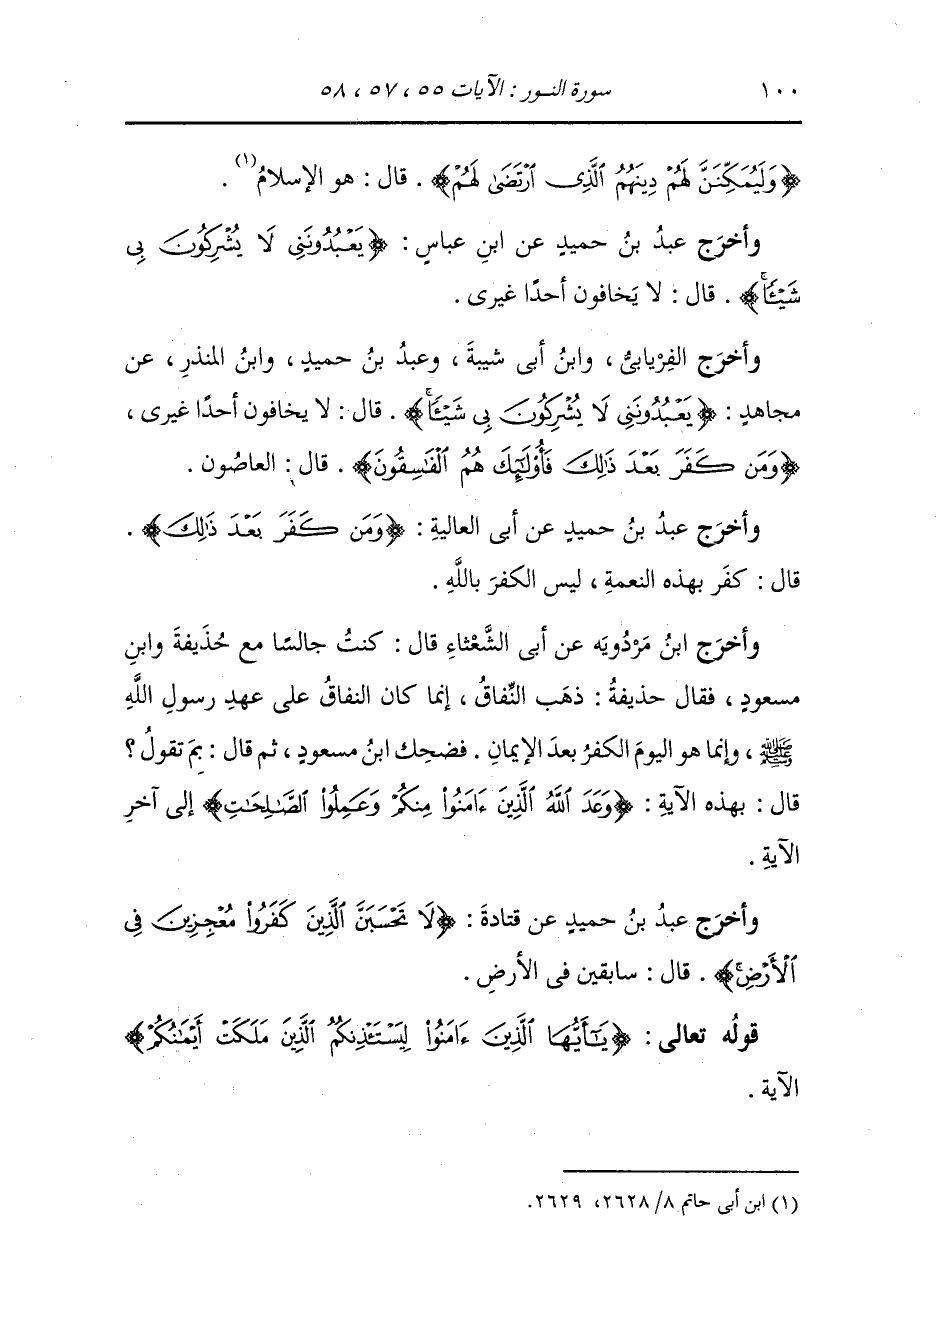 ١٠٠ سورة النـور : الآيات ٥٥ ، ٥٧ ، ٥٨
﴿وَلَيُمَكِّنَنَّ لَهُمْ دِينَهُمُ ٱلَّذِى ٱرْتَضَىٰ لَهُمْ﴾ . قال : هو الإسلامُ(١) .
وأخرَج عبدُ بنُ حميدٍ عن ابنِ عباسٍ : ﴿يَعْبُدُونَنِى لَا يُشْرِكُونَ بِى
شَيْـًٔاۚ﴾ . قال : لا يَخافون أحدًا غيرى .
وأخرَج الفِرْيابىُّ ، وابنُ أبى شيبةَ ، وعبدُ بنُ حميدٍ ، وابنُ المنذرِ ، عن
مجاهدٍ : ﴿يَعْبُدُونَنِى لَا يُشْرِكُونَ بِى شَيْـًٔاۚ﴾ . قال : لا يخافون أحدًا غيرى ،
﴿وَمَن كَفَرَ بَعْدَ ذَٰلِكَ فَأُوْلَٰٓئِكَ هُمُ ٱلْفَٰسِقُونَ﴾ . قال : العاصُون .
وأخرَج عبدُ بنُ حميدٍ عن أبى العاليةِ : ﴿وَمَن كَفَرَ بَعْدَ ذَٰلِكَ﴾ .
قال : كفَر بهذه النعمةِ ، ليس الكفرَ باللَّهِ .
وأخرَج ابنُ مَرْدُويَه عن أبى الشَّعْثاءِ قال : كنتُ جالسًا مع حُذَيفةَ وابنِ
مسعودٍ ، فقال حذيفةُ : ذهَب النِّفاقُ ، إنما كان النفاقُ على عهدِ رسولِ اللَّهِ
ﷺ ، وإنما هو اليومَ الكفرُ بعدَ الإيمانِ . فضحِك ابنُ مسعودٍ ، ثم قال : بِمَ تقولُ ؟
قال : بهذه الآيةِ : ﴿وَعَدَ ٱللَّهُ ٱلَّذِينَ ءَامَنُوا۟ مِنكُمْ وَعَمِلُوا۟ ٱلصَّٰلِحَٰتِ﴾ إلى آخرِ
الآيةِ .
وأخرَج عبدُ بنُ حميدٍ عن قتادةَ : ﴿لَا تَحْسَبَنَّ ٱلَّذِينَ كَفَرُوا۟ مُعْجِزِينَ فِى
ٱلْأَرْضِۚ﴾ . قال : سابقين فى الأرضِ .
قولُه تعالى : ﴿يَٰٓأَيُّهَا ٱلَّذِينَ ءَامَنُوا۟ لِيَسْتَـْٔذِنكُمُ ٱلَّذِينَ مَلَكَتْ أَيْمَٰنُكُمْ﴾
الآية .
(١) ابن أبى حاتم ٨/ ٢٦٢٨، ٢٦٢٩.